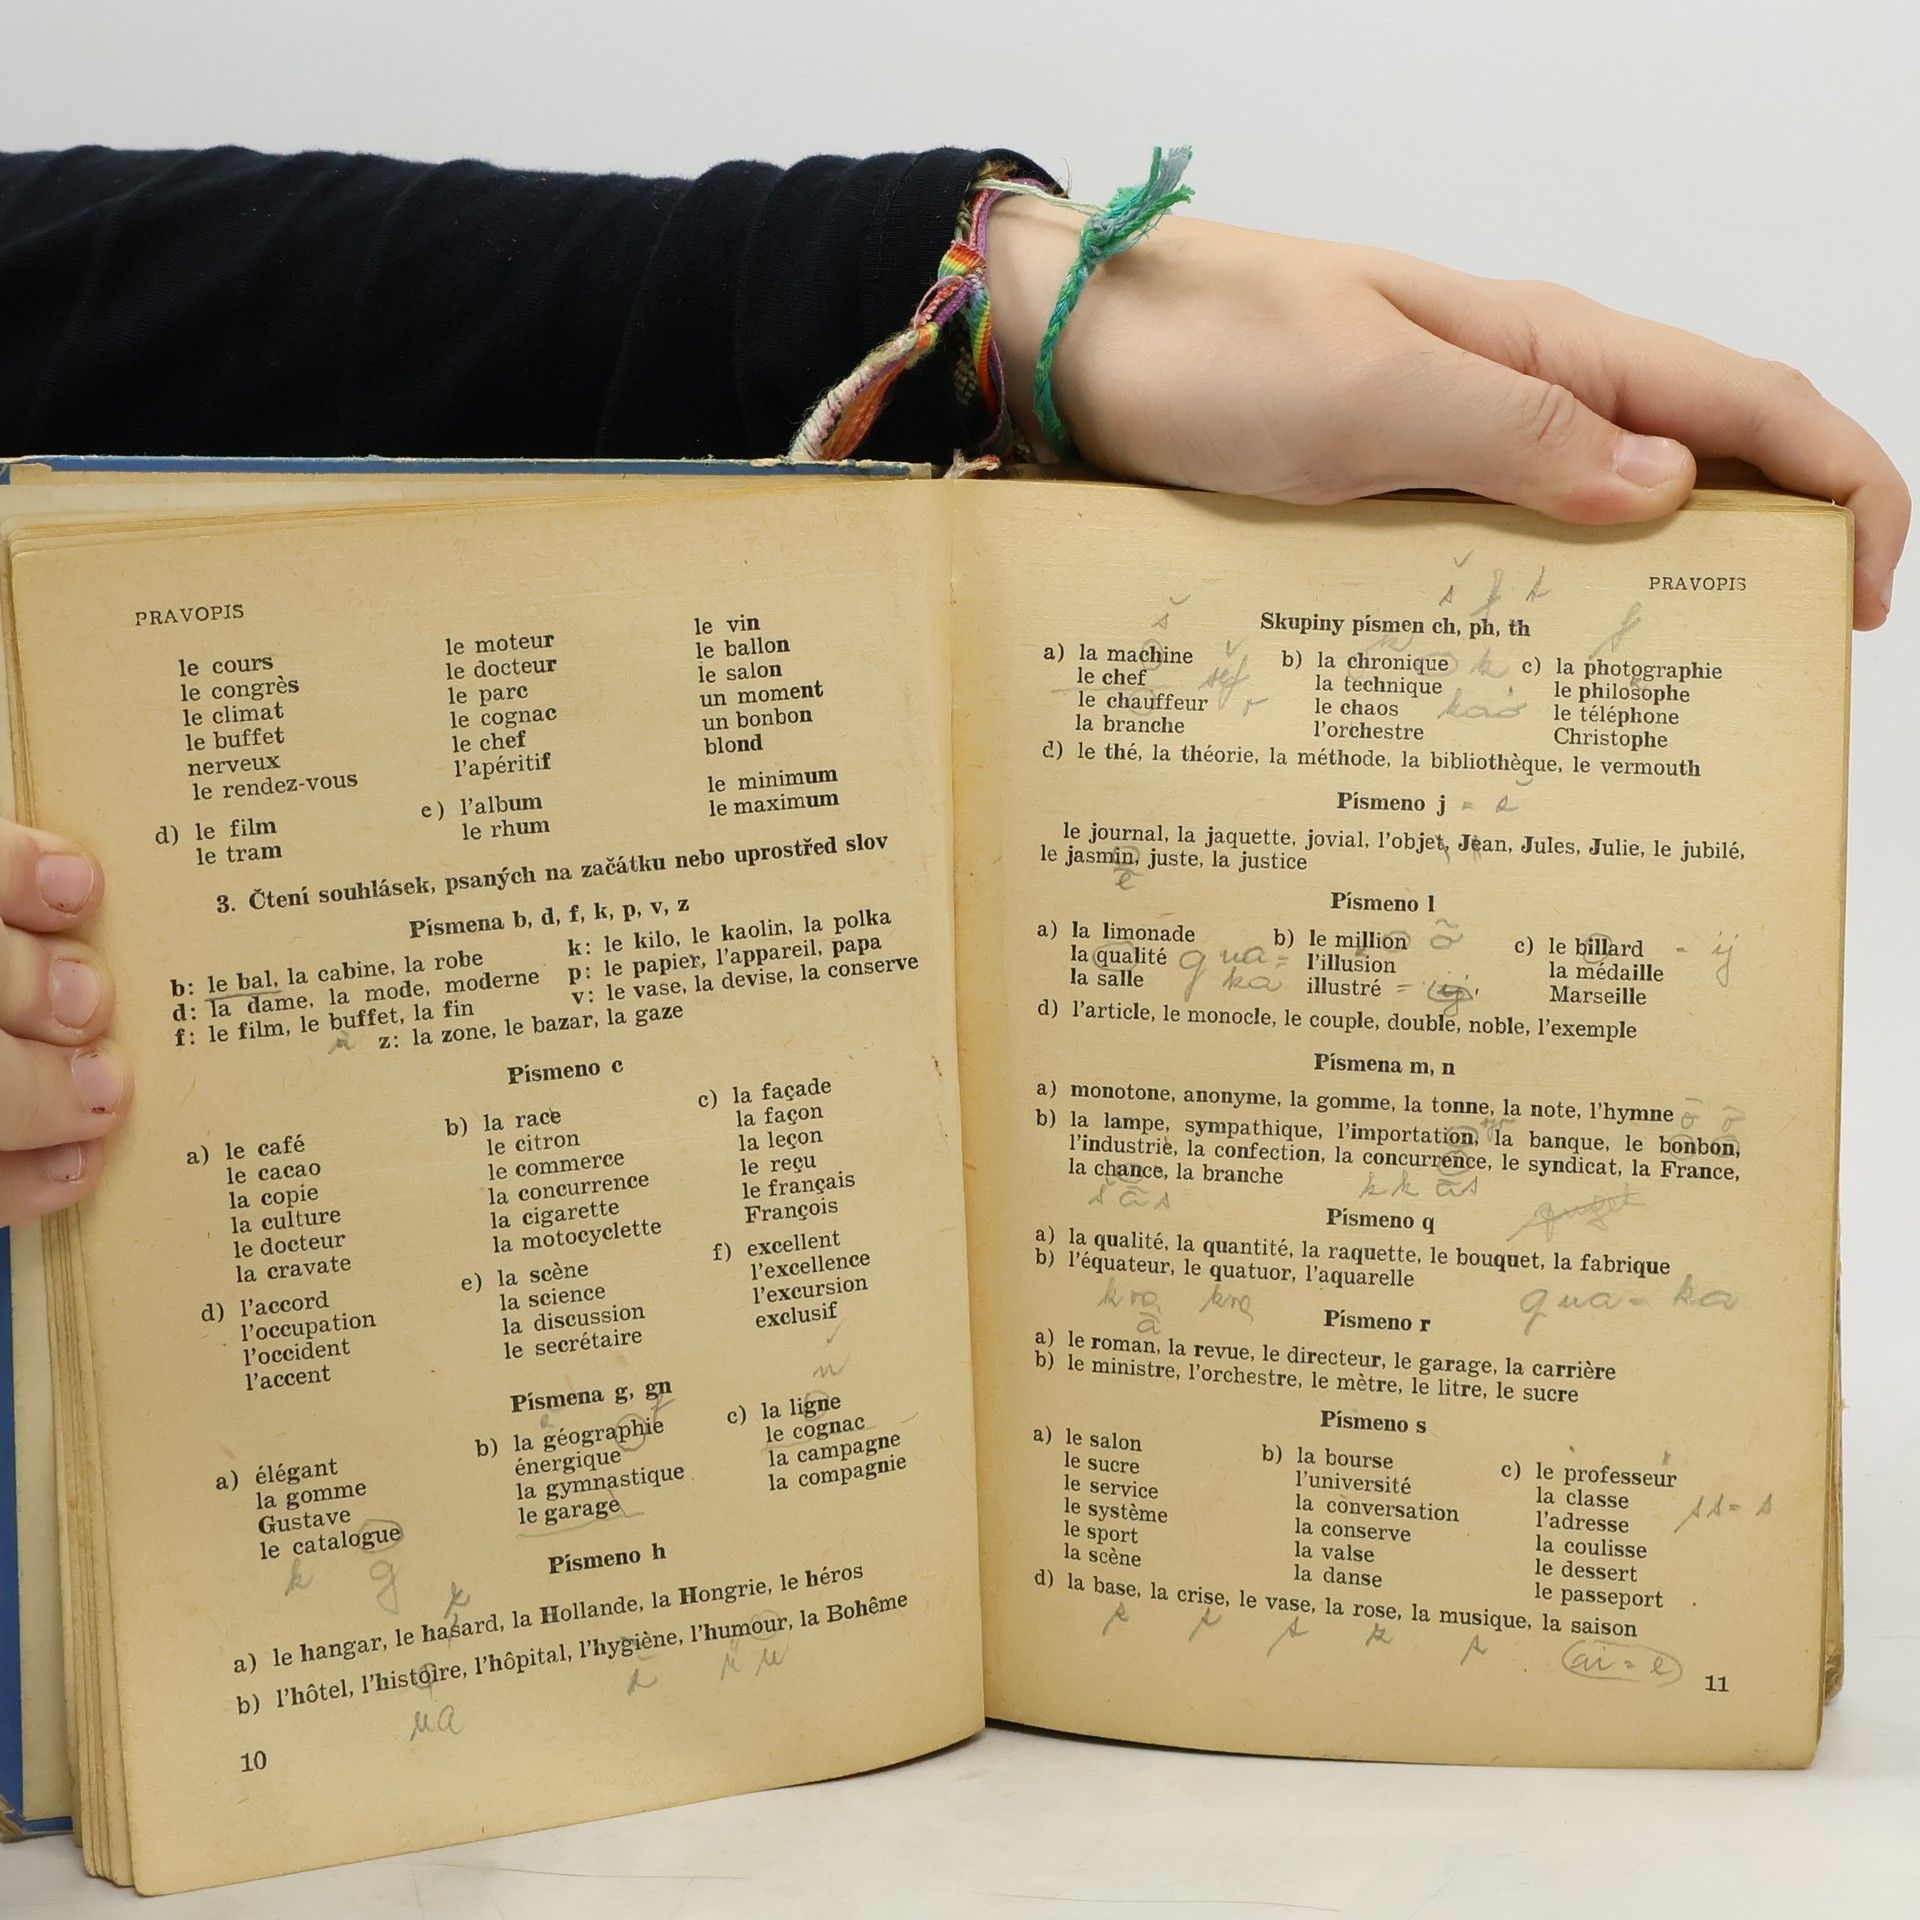 PRAVOPIS
le cours
le congrès
le climat
le buffet
nerveux
le rendez-vous
d) le film
le tram
le moteur
le docteur
le parc
le cognac
le chef
l'apéritif
e) l'album
le rhum
le vin
le ballon
le salon
un moment
un bonbon
blond
le minimum
le maximum
3. Čtení souhlásek, psaných na začátku nebo uprostřed slov
Písmena b, d, f, k, p, v, z
b: le bal, la cabine, la robe
d: la dame, la mode, moderne
f: le film, le buffet, la fin
k: le kilo, le kaolin, la polka
p: le papier, l'appareil, papa
v: le vase, la devise, la conserve
z: la zone, le bazar, la gaze
Písmeno c
a) le café
le cacao
la copie
la culture
le docteur
la cravate
b) la race
le citron
le commerce
la concurrence
la cigarette
la motocyclette
c) la façade
la façon
la leçon
le reçu
le français
François
d) l'accord
l'occupation
l'occident
l'accent
e) la scène
la science
la discussion
le secrétaire
f) excellent
l'excellence
l'excursion
exclusif
Písmena g, gn
a) élégant
la gomme
Gustave
le catalogue
k g
b) la géographie
énergique
la gymnastique
le garage
c) la ligne
le cognac
la campagne
la compagnie
Písmeno h
a) le hangar, le hasard, la Hollande, la Hongrie, le héros
b) l'hôtel, l'histoire, l'hôpital, l'hygiène, l'humour, la Bohême
ua
10
PRAVOPIS
š f t
Skupiny písmen ch, ph, th
a) la machine
le chef šéf
le chauffeur
la branche
b) la chronique k
la technique
le chaos kaó
l'orchestre
c) la photographie
le philosophe
le téléphone
Christophe
d) le thé, la théorie, la méthode, la bibliothèque, le vermouth
Písmeno j = ž
le journal, la jaquette, jovial, l'objet, Jean, Jules, Julie, le jubilé,
le jasmin, juste, la justice
Písmeno l
a) la limonade
la qualité qua =
la salle ka
b) le million
l'illusion
illustré = ij
c) le billard = ij
la médaille
Marseille
d) l'article, le monocle, le couple, double, noble, l'exemple
Písmena m, n
a) monotone, anonyme, la gomme, la tonne, la note, l'hymne
b) la lampe, sympathique, l'importation, la banque, le bonbon,
l'industrie, la confection, la concurrence, le syndicat, la France,
la chance, la branche
š ã s k k ãs
Písmeno q
a) la qualité, la quantité, la raquette, le bouquet, la fabrique
b) l'équateur, le quatuor, l'aquarelle
qua = ka
Písmeno r
a) le roman, la revue, le directeur, le garage, la carrière
b) le ministre, l'orchestre, le mètre, le litre, le sucre
Písmeno s
a) le salon
le sucre
le service
le système
le sport
la scène
b) la bourse
l'université
la conversation
la conserve
la valse
la danse
c) le professeur
la classe
l'adresse
la coulisse
le dessert
le passeport
ss = s
d) la base, la crise, le vase, la rose, la musique, la saison
ai = e
11